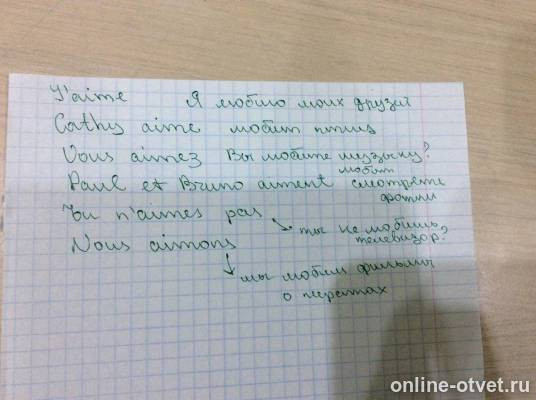 J'aime Я люблю моих друзей
Cathy aime любит птиц
Vous aimez Вы любите музыку?
любит
Paul et Bruno aiment смотреть
фотки
Tu n'aimes pas
ты не любишь
Nous aimons
телевизор?
мы любим фильмы
о пиратах
online-otvet.ru